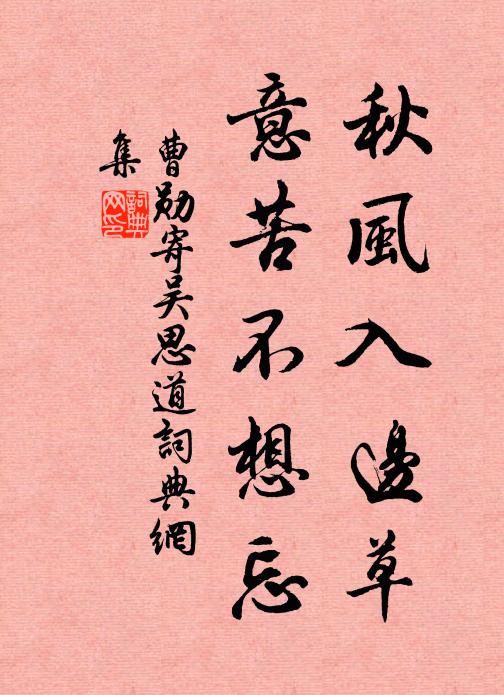 秋風入邊草
意苦不想忘
曹勛寄吴思道詞典網
集
詞典網印